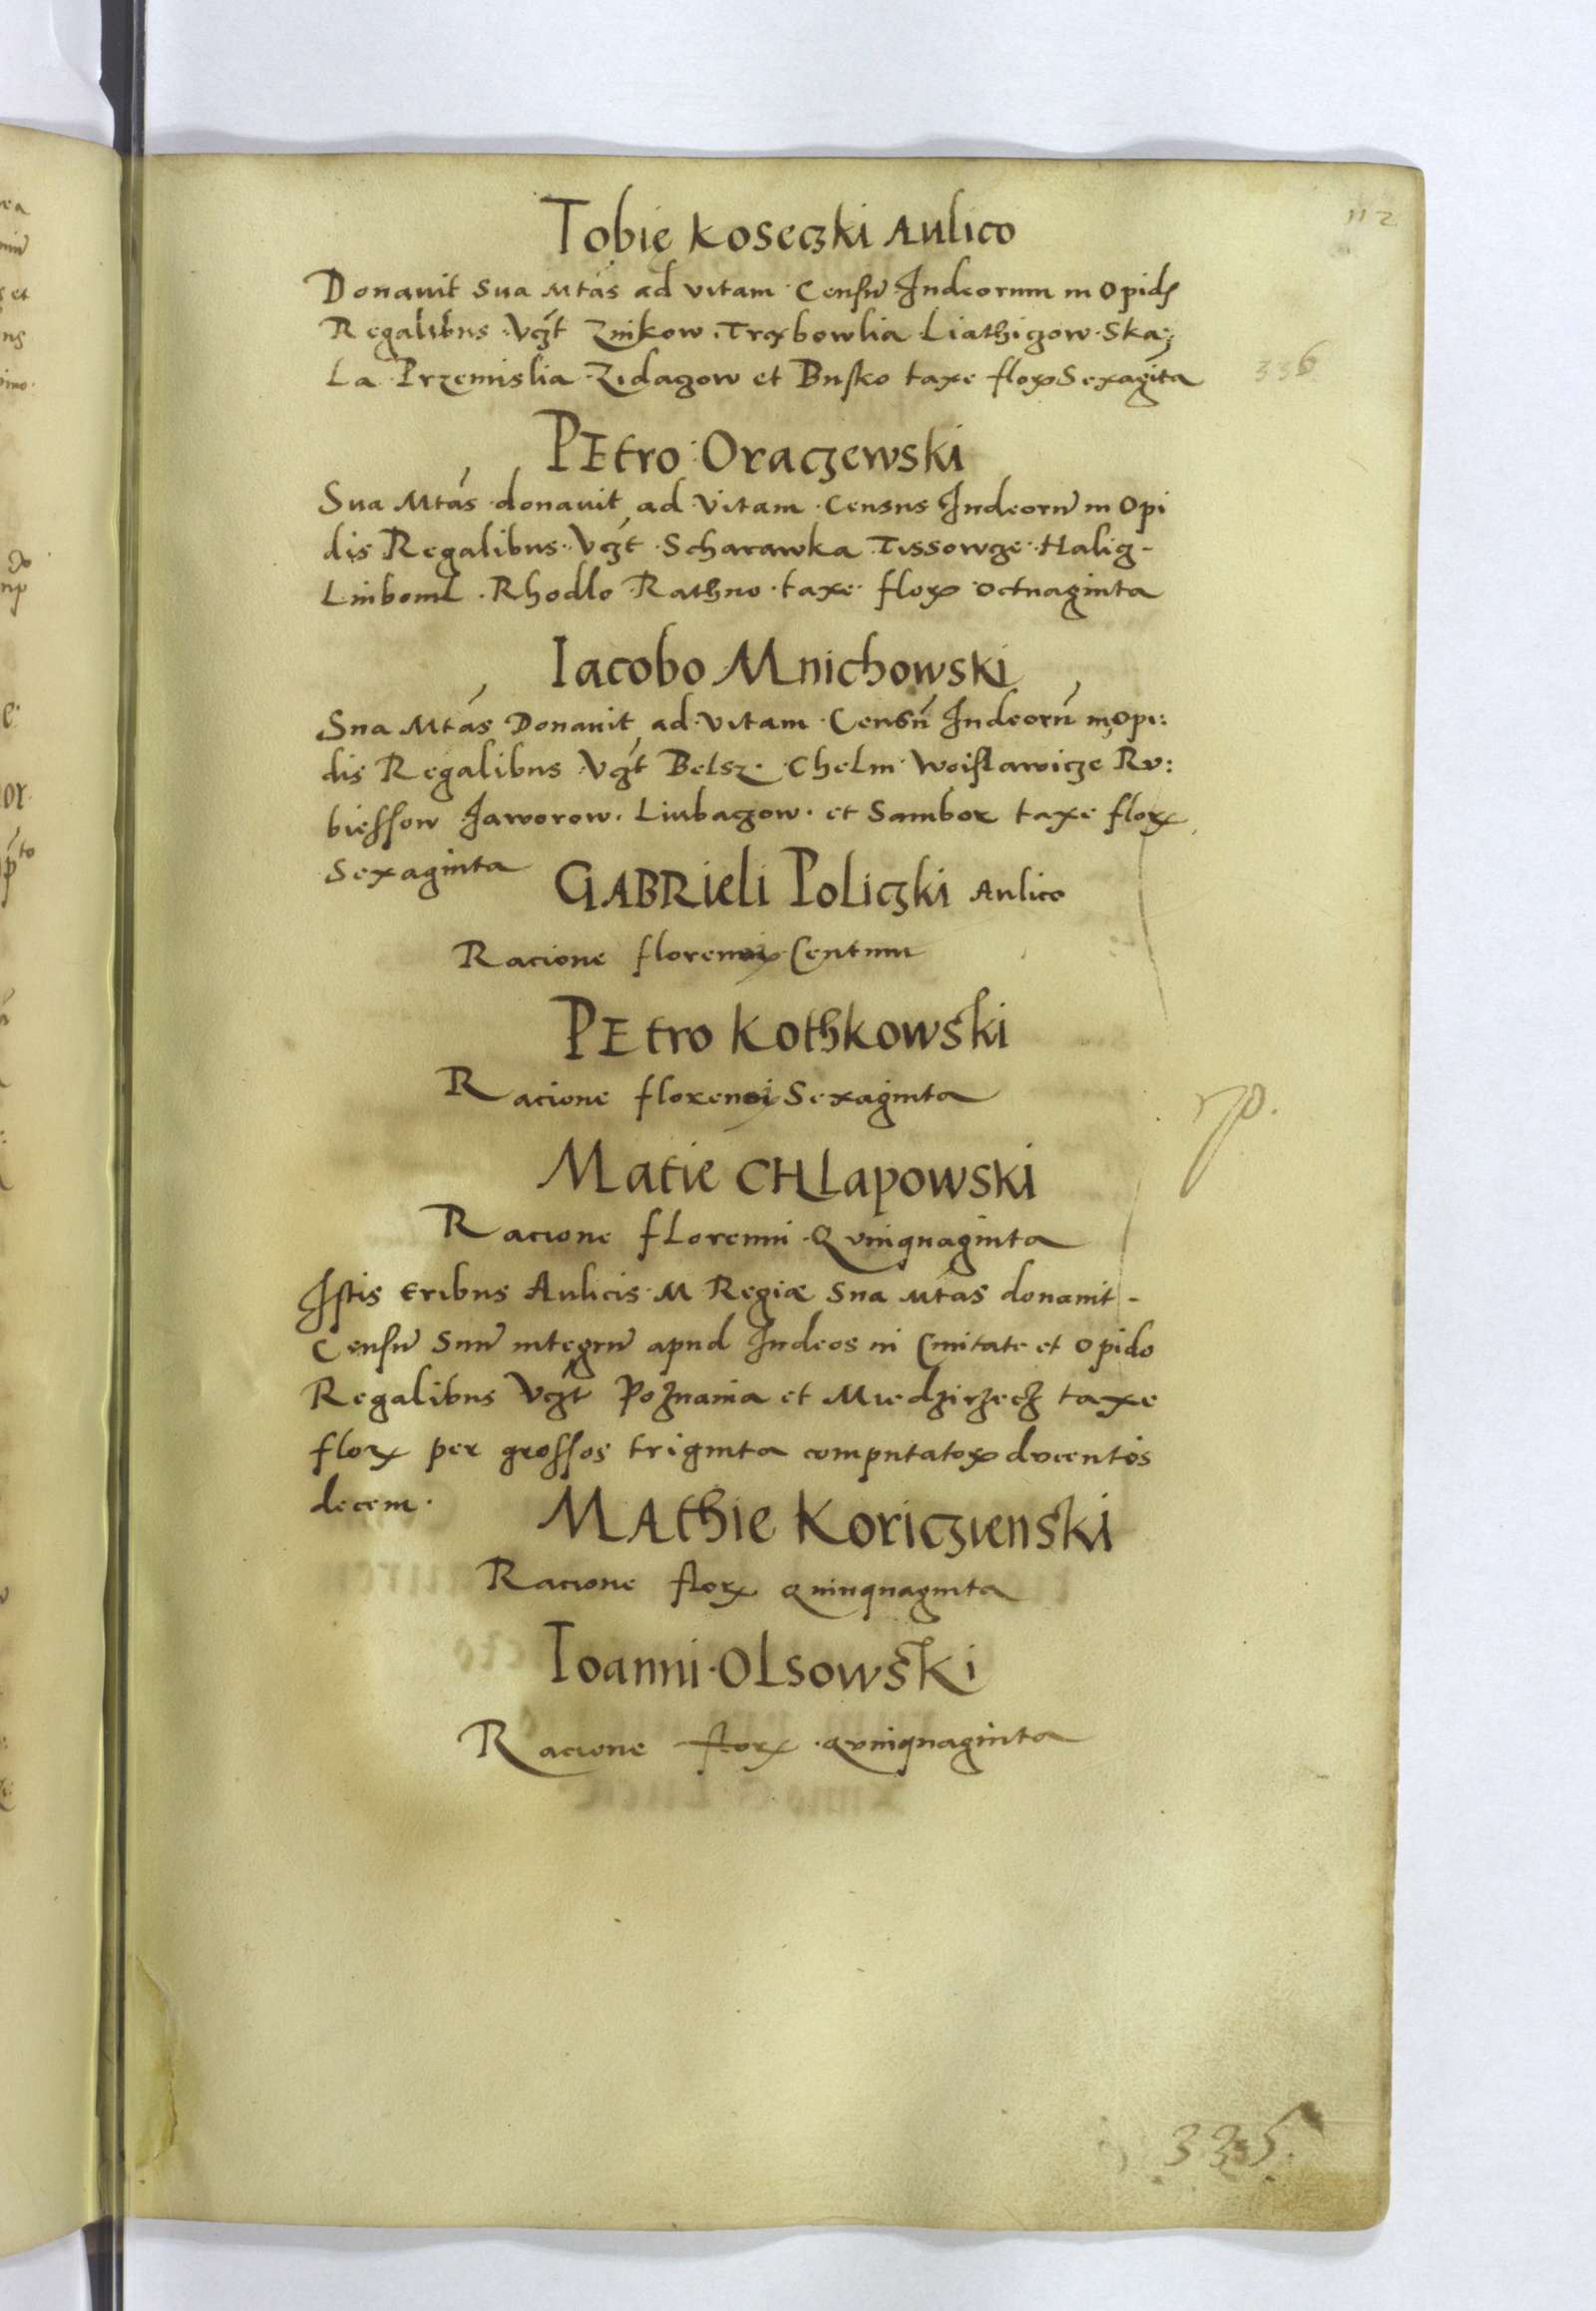 112
Tobie Koseczki Aulico
Donauit Sua Mtás ad vitam Censũ Iudeorum in Opidȷ
Regalibus Vczt Znikow. Trębowlia Liathiczow Ska:
La Przemislia Zidaczow et Busko taxe floꝝ Sexagita
336
Petro Oraczewski
Sua Mtás donauit ad Vitam Census Iudeorũ in Opi
dis Regalibus Vczt Scharawka Tissowcze Halicz-
Luiboml Rhodlo Rathno taxe floꝝ octuaginta
Iacobo Mnichowski
Sua Mtás Donauit ad vitam Censũ Iudeorũ in Opi:
dis Regalibus Vczt Belsz. Chelm Woislawicze Ru:
biessow Jaworow. Liubaczow. et Sambor taxe floꝝ
Sexaginta
Gabrieli Policzki Aulico
Racione florenoꝝ Centum
Petro Kothkowski
Racione florenoꝝ Sexaginta
Matie Chlapowski
Racione florenni Quinquaginta
Istis tribus Aulicis M Regiæ Sua Mtás donauit -
Censũ Suũ integrũ apud Iudeos in Ciuitate et Opido
Regalibus Vczt Poznania et Miedzirzecz taxe
floꝝ per grossos triginta computatoꝝ ducentis
decem.
Mathie Koriczienski
Racione floꝝ quinquaginta
Ioanni Olsowski
Racione floꝝ quinquaginta
335